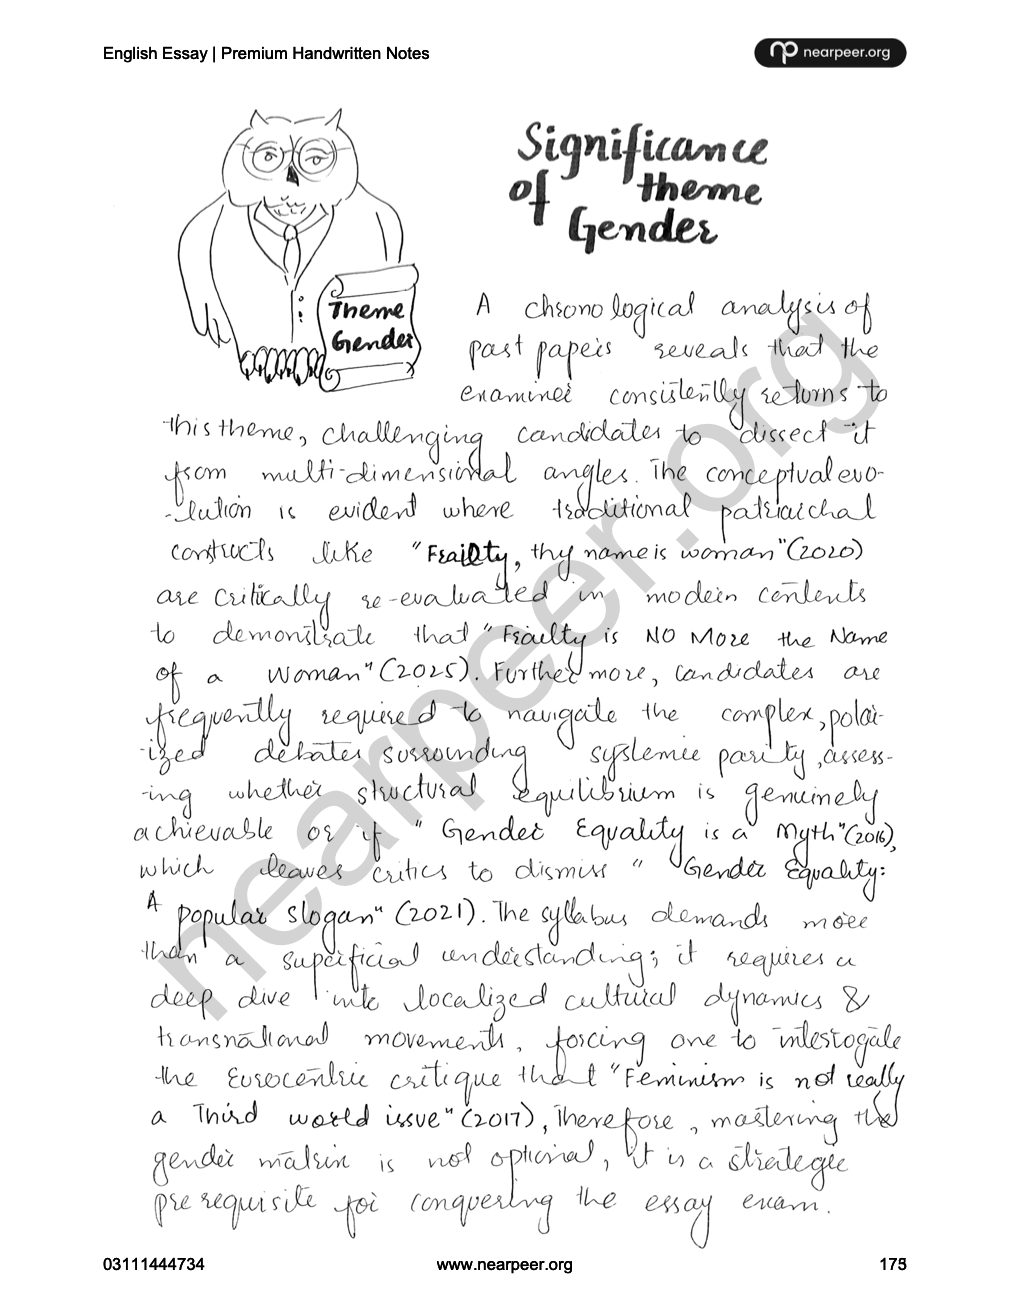 English Essay | Premium Handwritten Notes
nearpeer.org
Significance
of theme
Gender
Theme
Gender
A chronological analysis of
past papers reveals that the
examiner consistently returns to
this theme, challenging candidates to dissect it
from multi-dimensional angles. The conceptual evo-
-lution is evident where traditional patriarchal
constructs like "Frailty, thy name is woman" (2020)
are critically re-evaluated in modern contexts
to demonstrate that "Frailty is NO MORE the Name
of a Woman" (2025). Furthermore, candidates are
frequently required to navigate the complex, polar-
-ized debates surrounding systemic parity, assess-
-ing whether structural equilibrium is genuinely
achievable or if "Gender Equality is a Myth" (2016),
which leaves critics to dismiss "Gender Equality:
A popular slogan" (2021). The syllabus demands more
than a superficial understanding; it requires a
deep dive into localized cultural dynamics &
transnational movements, forcing one to interrogate
the Eurocentric critique that "Feminism is not really
a Third world issue" (2017), Therefore, mastering the
gender matrix is not optional, it is a strategic
prerequisite for conquering the essay exam.
nearpeer.org
03111444734
www.nearpeer.org